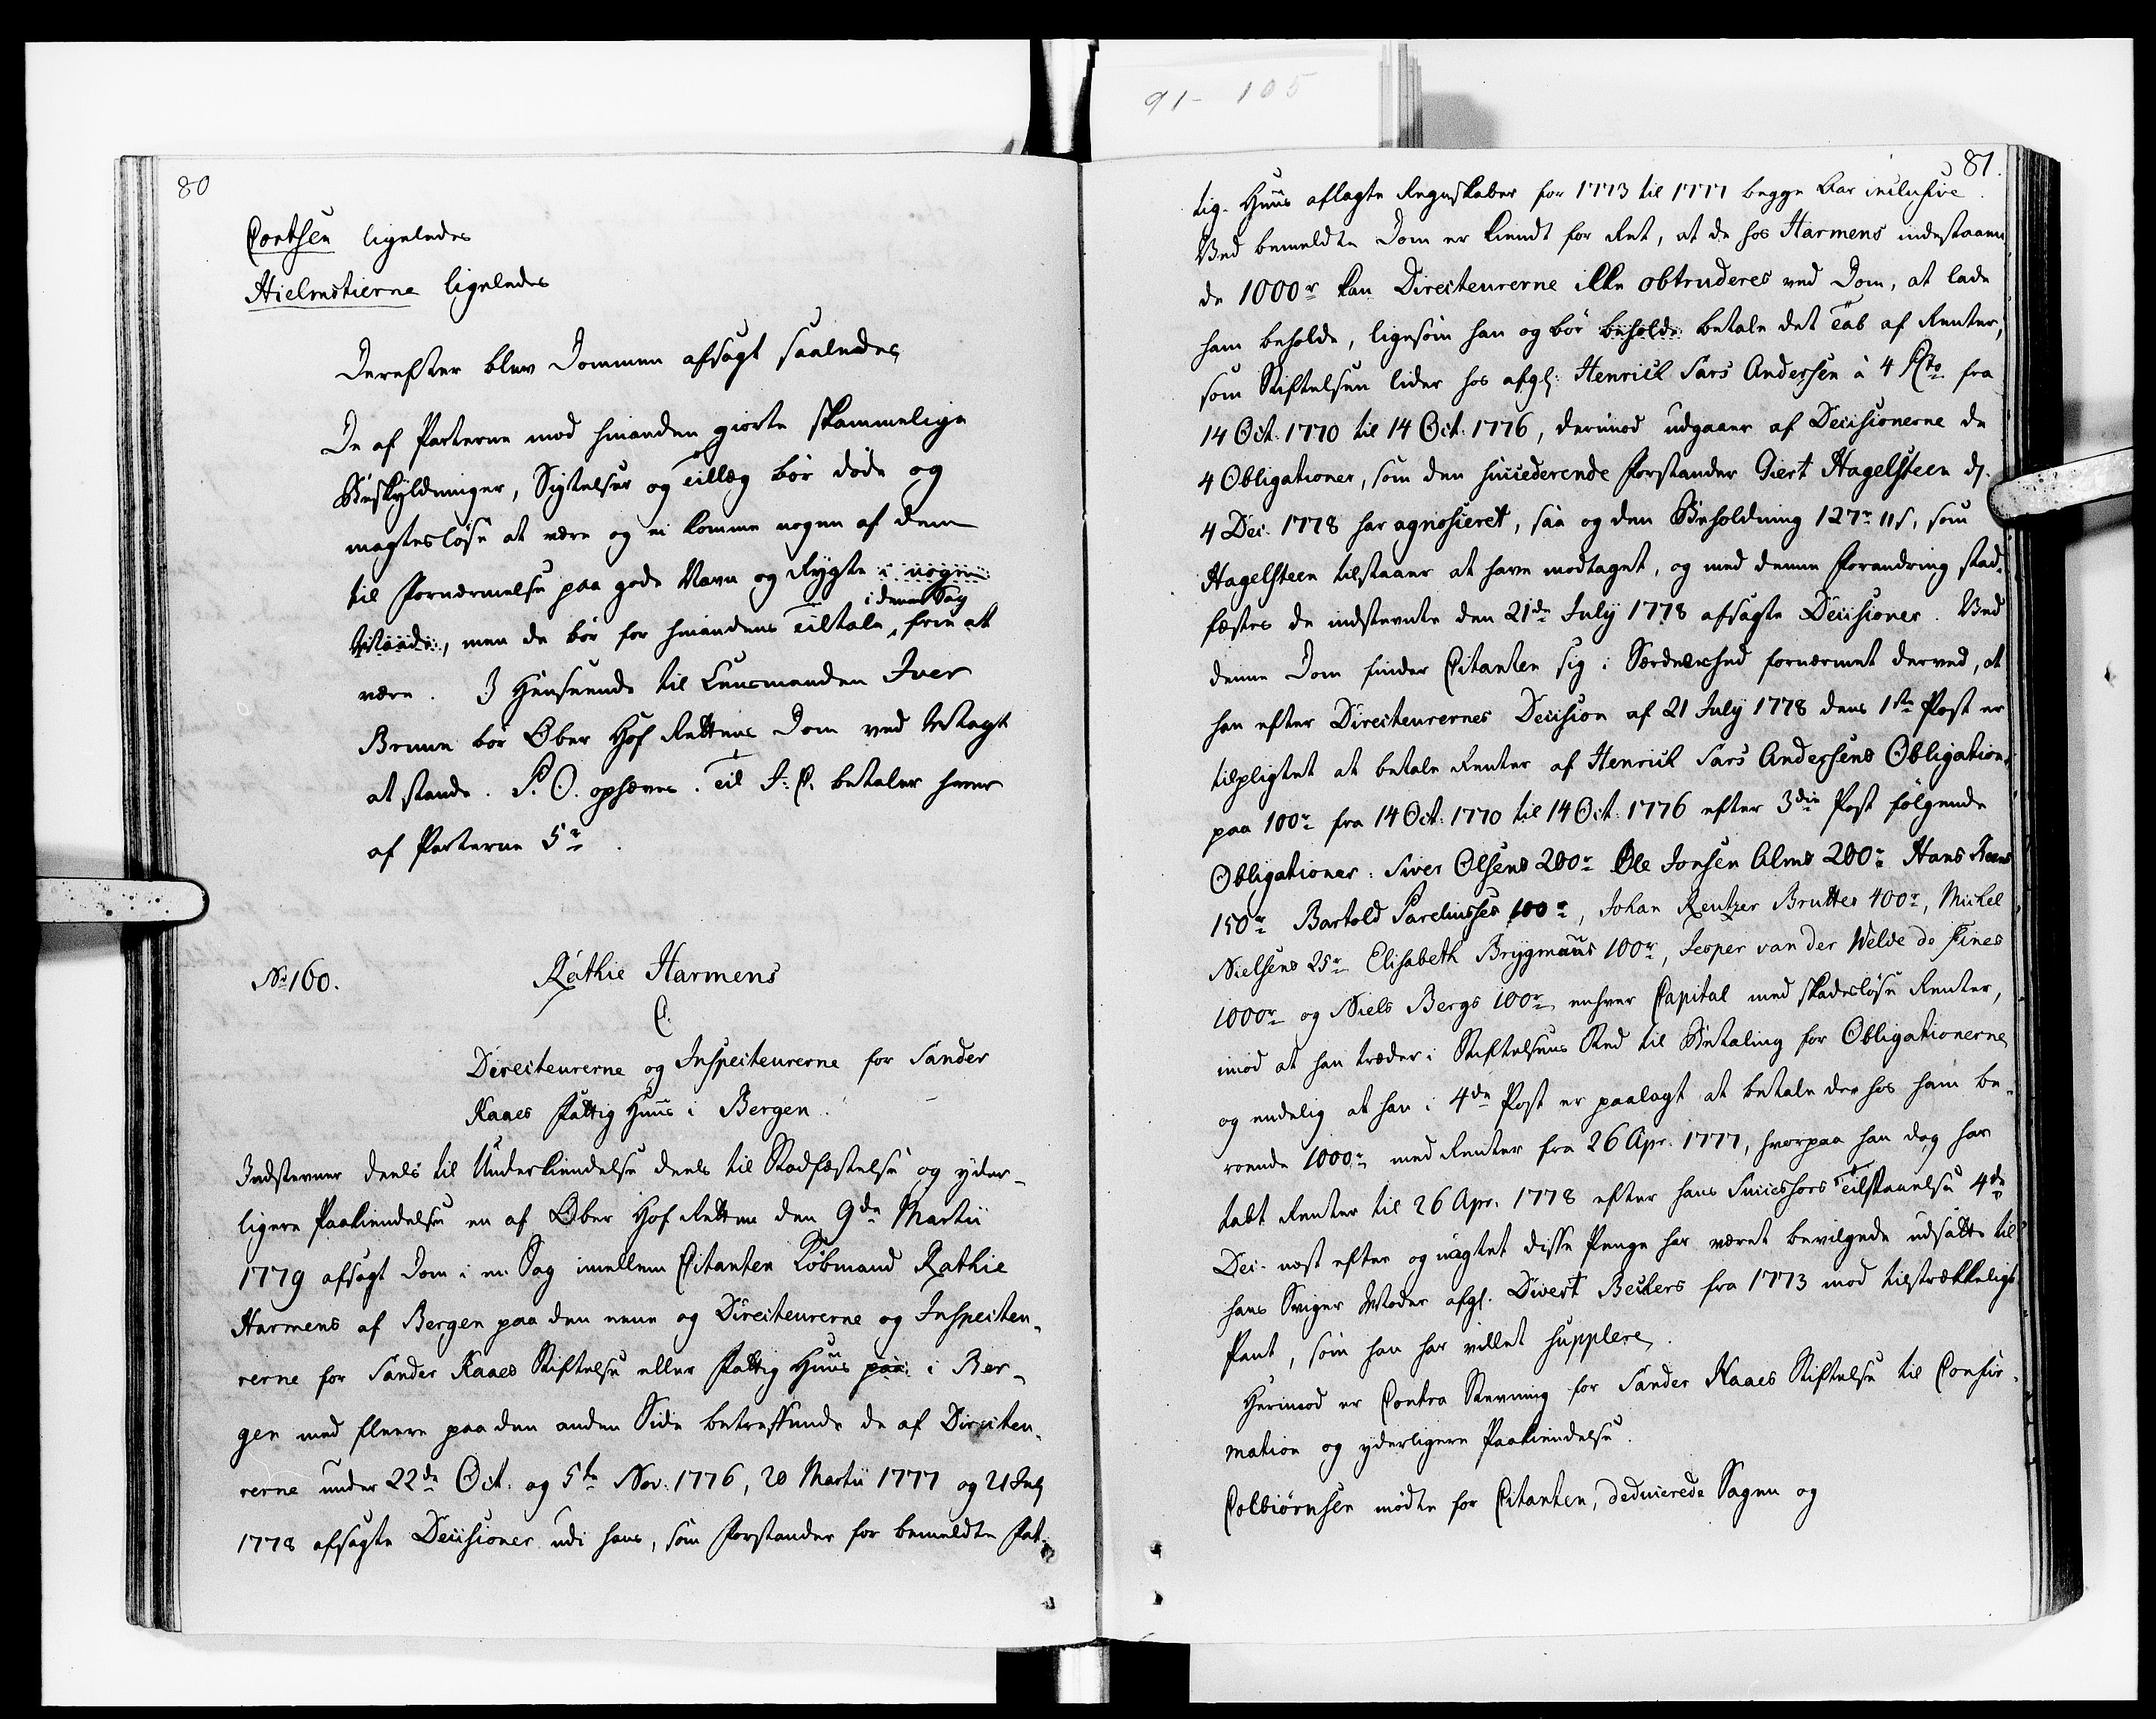 91-105
80
Cortsen ligeledes
Hielmstierne ligeledes
Derefter blev Dommen afsagt saaledes
De af Parterne mod hinanden giorte skammelige
Beskyldninger, Sigtelser og Tillæg bør døde og
magtesløse at være og ei komme nogen af dem
til Fornærmelse paa gode Navn og Rygte i nogen
i denne Sag
Maade, men de bør for hinandens Tiltale frie at
være. I Henseende til Lensmanden Iver
Brune bør Ober Hof Rettens Dom ved Magt
at stande. P. O. ophæves. Til J. C. betaler hver
af Parterne 5r.
No 160. Rathie Harmens
C.
Directeurerne og Inspecteurerne for Sander
Kaaes Fattig Huus i Bergen.
Indstevner deels til Underkiendelse deels til Stadfæstelse og yder-
ligere Paakiendelse en af Ober Hof Retten den 9de Martii
1779 afsagt Dom i en Sag imellem Citanten Købmand Rathie
Harmens af Bergen paa den eene og Directeurerne og Inspecteu-
rerne for Sander Kaaes Stiftelse eller Fattig Huus paa i Ber-
gen med fleere paa den anden Side betreffende de af Directeu-
rerne under 22de Oct. og 5te Nov. 1776, 20 Martii 1777 og 21 July
1778 afsagte Decisioner udi hans, som Forstander for bemeldte Fat-
81.
tig-Huus aflagte Regnskaber for 1773 til 1777 begge Aar inclusive.
Ved bemeldte Dom er kiendt for Ret, at de hos Harmens indestaaen-
de 1000r kan Directeurerne ikke obtruderes ved Dom, at lade
ham beholde, ligesom han og bør beholde betale det Tab af Renter,
som Stiftelsen lider hos afgl: Henrick Lars Andersen à 4 Pcto fra
14 Oct. 1770 til 14 Oct. 1776, derimod udgaaer af Decisionerne de
4 Obligationer, som den succederende Forstander Giert Hagelsteen d.
4 Dec. 1778 har agnosceret, saa og den Beholdning 127r 11s, som
Hagelsteen tilstaaer at have modtaget, og med denne Forandring stad-
fæstes de indstevnte den 21de July 1778 afsagte Decisioner. Ved
denne Dom finder Citanten sig i Særdeleshed fornærmet derved, at
han efter Directeurernes Decision af 21 July 1778 dens 1ste Post er
tilpligtet at betale Renter af Henrick Lars Andersens Obligation
paa 100r fra 14 Oct. 1770 til 14 Oct. 1776 efter 3die Post følgende
Obligationer: Siver Olsens 200r Ole Jonsen Alms 200r Hans
150r Bartold 100r, Johan Rentzer Bruttes 400r, Michel
Nielsens 25r Elisabeth Brygmans 100r, Jesper van der Welde de Fines
1000r og Niels Bergs 100r enhver Capital med skadesløse Renter,
imod at han træder i Stiftelsens Sted til Betaling for Obligationerne
og endelig at han i 4de Post er paalagt at betale der hos ham be-
roende 1000r med Renter fra 26 Apr. 1777, hvorpaa han dog har
tabt Renter til 26 Apr. 1778 efter hans Successors Tilstaaelse 4de
Dec. næst efter og uagtet disse Penge har været bevilgede udsatte til
hans Sviger Moder afgl. Divert Beckers fra 1773 mod tilstrækkeligt
Pant, som han har villet supplere.
Herimod er Contra Stevning for Sander Kaaes Stiftelse til Confir-
mation og yderligere Paakiendelse.
Colbiørnsen mødte for Citanten, deducerede Sagen og